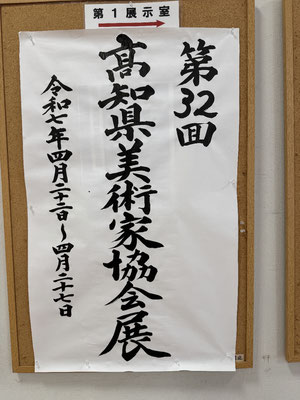 第1展示室
第32回
高知県美術家協会展
令和七年四月二十二日～四月二十七日